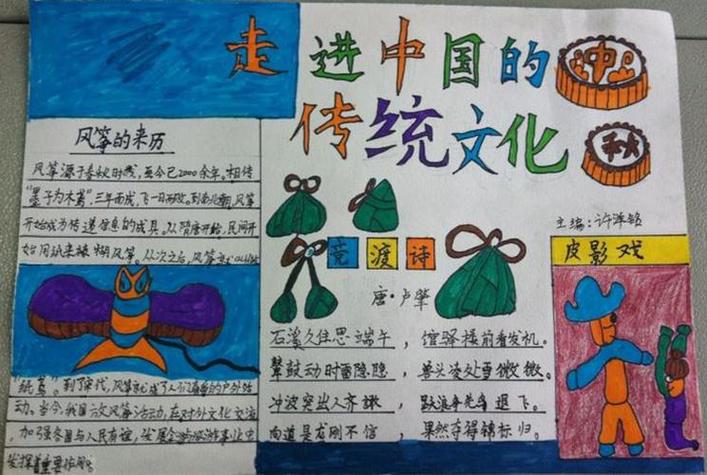 走进中国的
传统文化
中
秋
主编：许泽铭
风筝的来历
风筝源于春秋时代，至今已2000余年，相传
"墨子为木鸢"，三年而成，飞一日而败，到南北朝，风筝
开始成为传递信息的工具。从隋唐开始，民间开
始用纸来裱糊风筝。从次之后，风筝
"纸鸢"。到了宋代，风筝就成了人们喜爱的户外活
动。当今，我国放风筝活动，在对外文化交流
，加强各国与人民友谊，发展全旅游事业中
发挥着重要作用。
竞渡诗
唐·卢肇
石溪久住思端午，馆驿楼前看发机。
鼙鼓动时雷隐隐，兽头凌处雪微微。
冲波突出人齐譀，跃浪争先鸟退飞。
向道是龙刚不信，果然夺得锦标归。
皮影戏